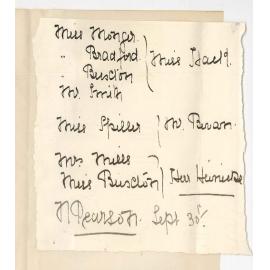 Miss Monger
" Bradford
" Buscton
Mr. Smith
Miss
Miss Spiller
Mr. Bevan.
Mrs Mills
Miss Buscton
Herr
Pearson. Sept 30